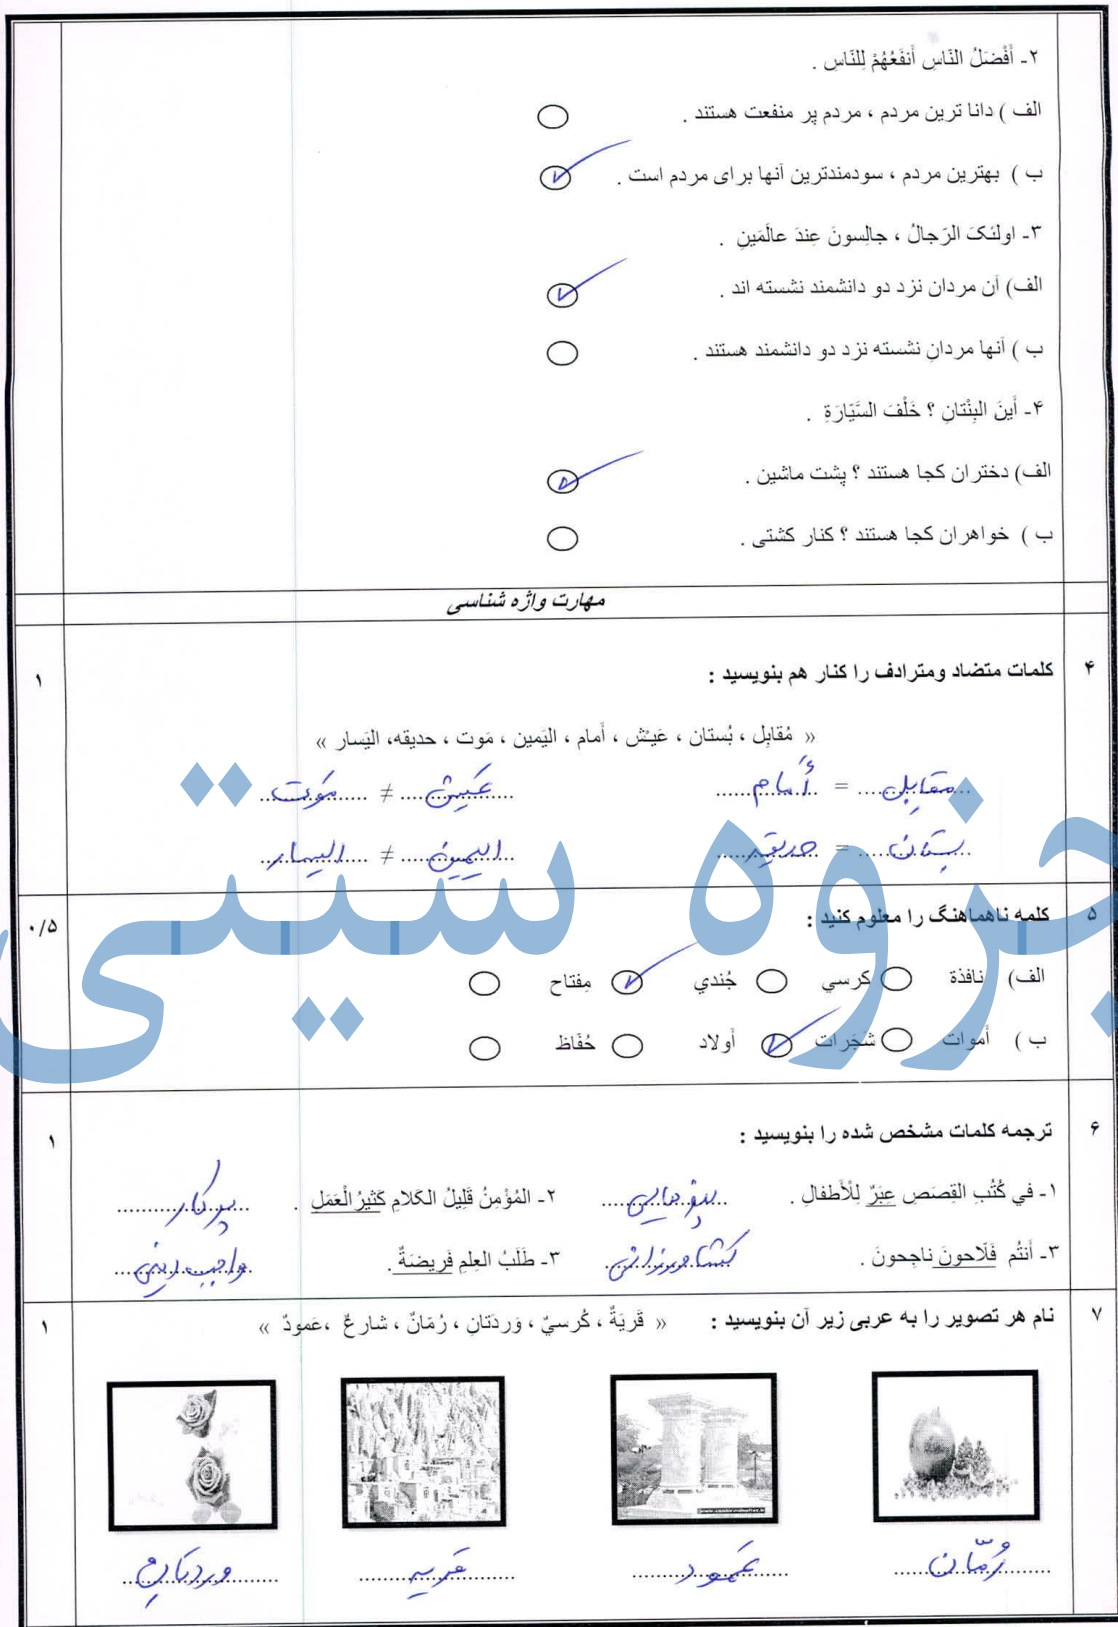 ۲ـ أَفْضَلُ النّاسِ أَنفَعُهُمْ لِلنّاسِ .
الف ) دانا ترین مردم ، مردم پر منفعت هستند .
ب ) بهترین مردم ، سودمندترین آنها برای مردم است .
۳ـ اولئکَ الرّجالُ ، جالِسونَ عِندَ عالَمَینِ .
الف) آن مردان نزد دو دانشمند نشسته اند .
ب ) آنها مردانِ نشسته نزد دو دانشمند هستند .
۴ـ أَینَ البِنْتانِ ؟ خَلْفَ السَّیّارَةِ .
الف) دختران کجا هستند ؟ پشت ماشین .
ب ) خواهران کجا هستند ؟ کنار کشتی .
مهارت واژه شناسی
۴ کلمات متضاد ومترادف را کنار هم بنویسید : ۱
« مُقابِل ، بُستان ، عَیْش ، أَمام ، الیَمین ، مَوت ، حدیقه، الیَسار »
مقابل = أَمام عَیش ≠ مَوت
بستان = حدیقه الیمین ≠ الیسار
۵ کلمه ناهماهنگ را معلوم کنید : ۰/۵
الف) نافذة کرسي جُندي مِفتاح
ب ) أَموات شَجَرات أَولاد حُفّاظ
۶ ترجمه کلمات مشخص شده را بنویسید : ۱
۱ـ في کُتُبِ القِصَصِ عِبَرٌ لِلْأَطفالِ . ۲ـ المُؤْمِنُ قَلِیلُ الکَلامِ کَثیرُالْعَمَلِ . پرکار
۳ـ أَنتُم فَلّاحونَ ناجِحونَ . کشاورزانی ۳ـ طَلَبُ العِلمِ فَریضَةٌ . واجب دینی
۷ نام هر تصویر را به عربی زیر آن بنویسید : « قَریَةٌ ، کُرسيٌ ، وَردَتانِ ، رُمّانٌ ، شارِعٌ ،عَمودٌ » ۱
رُمّان عمود قریه وردتانِ
جزوه سیتی